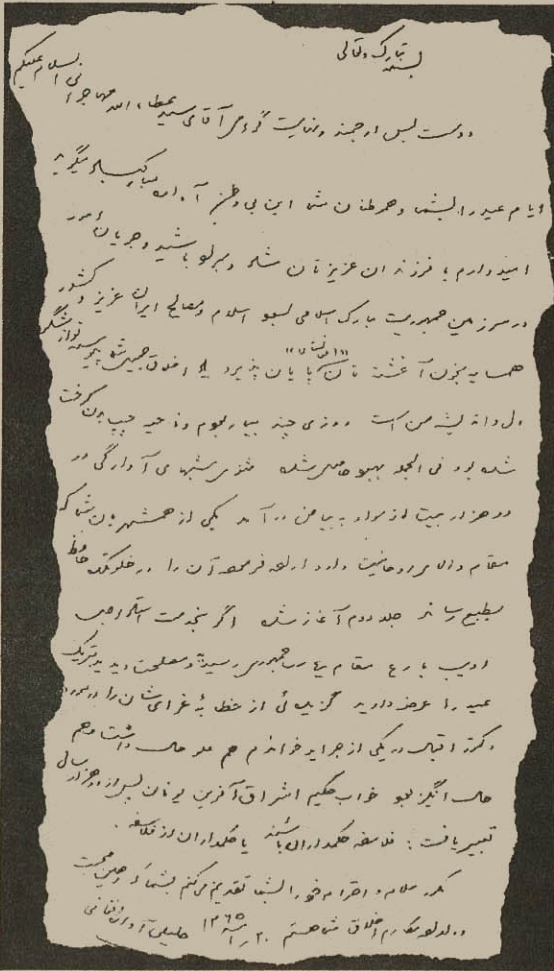 بسمه تبارک وتعالی
السلام علیکم
دوست بس ارجمند و نهایت گرامی آقای سید عطاء الله مهاجرانی
ایام عید را بشما و همرطنان شما این بی وطن آواره مبارکباد میگوید
امیدوارم با فرزندان عزیزتان شاد و باشید و جریان امور
در سرزمین جمهوریت مبارک اسلامی بسود اسلام و مصالح ایران عزیز و کشور
همسایه بخون آغشته تان "افغانستان" پایان پذیرد اخلاق جمیل شما نوازشگر
دل و اندیشه من است روزی چند بیمار بودم وناحیه چپ بدن کرخت
شده بود فی الجمله بهبود حاصل شده مثنوی شبهای آوارگی در
دو هزار بیت از سواد به بیاض در آمد یکی از همشهریان شما که
مقام والای روحانیت دارد اراده فرموده آن را در
بطبع رساند جلد دوم آغاز شده اگر بخدمت استاد اجل
ادیب بارع مقام ریاست جمهوری رسیدید و مصلحت دیدید تبریک
عید را عرضه دارید گزیده‌ئی از خطابهٔ غرای شان را در مورد
دکتر اقبال در یکی از جراید خواندم هم علو حال داشت و هم
حال انگیز بود خواب حکیم اشراق آفرین یونان پس از دو هزار سال
تعبیر یافت : فلاسفه حکمداران باشند یا حکمداران از فلاسفه .
مکرر سلام و احترام خود را بشما تقدیم میکنم بشما و
مکارم اخلاق شما هستم ۲۰ / ۱ / ۱۳۶۵ خلیلی آواره افغانی